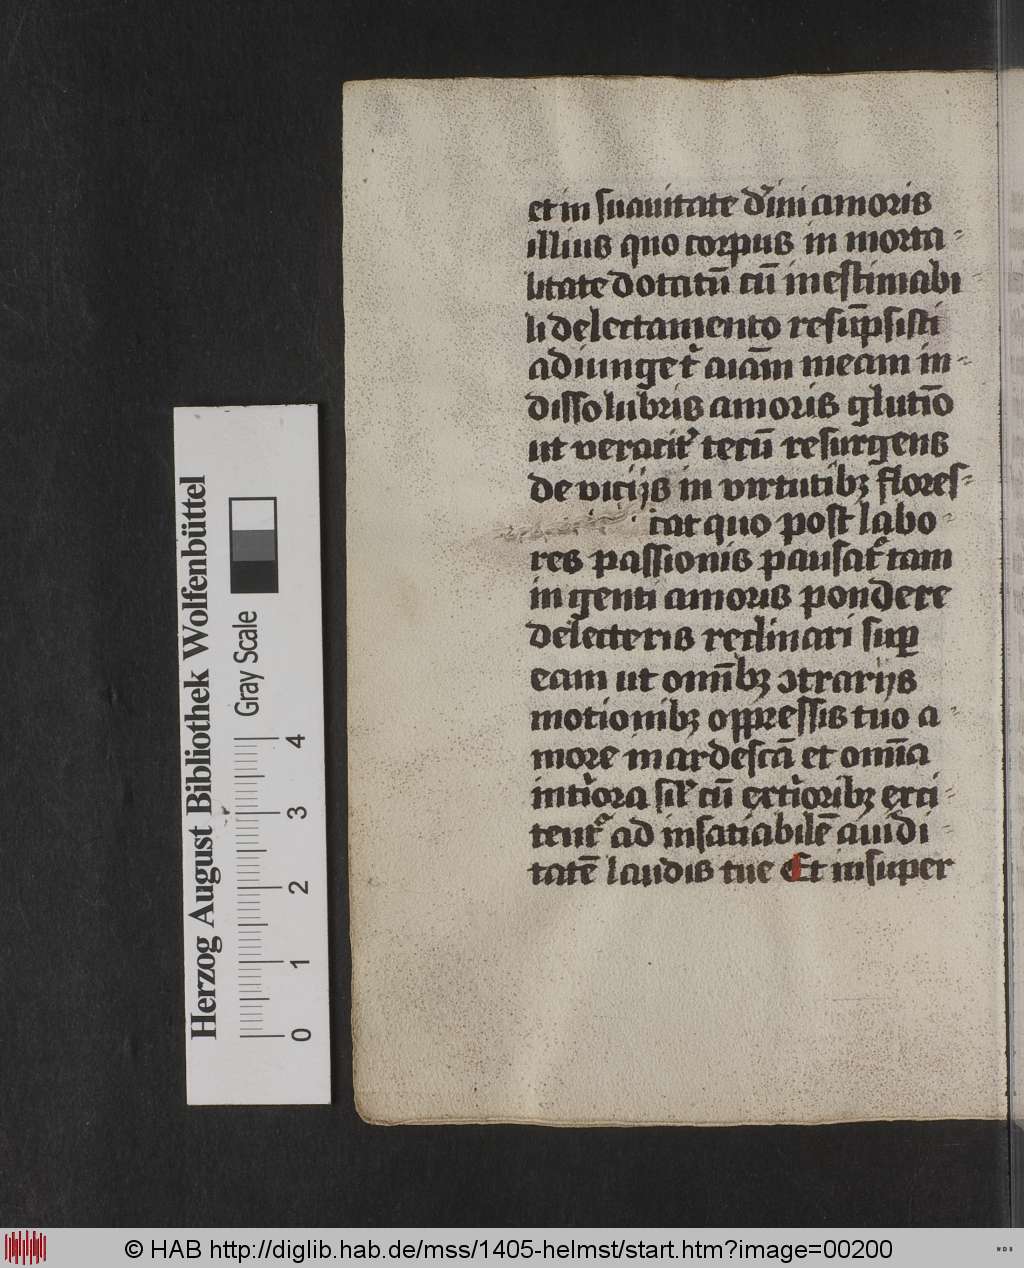 et in suauitate dıͥni amoris
illius quo corpus in morta-
litate dotatū cū inestimabi-
li delectamento resūpsisti
adiunget᷑ aıām meam in-
dissolubris amoris glutīo
ut veracit᷑ tecū resurgens
de vicijs in virtutibꝫ flores-
cat quo post labo-
res passionis pausat᷑ tam
ingenti amoris pondere
delecteris reclinari suꝑ
eam ut omībꝫ ↄtrarijs
motionibꝫ oppressis tuo a-
more inardescā et omīa
inti᷑ora sil᷑ cū exti᷑oribꝫ exci-
tent᷑ ad insatiabilē auidi-
tatē laudis tue Et insuper
Herzog August Bibliothek Wolfenbüttel
Gray Scale
0 1 2 3 4
© HAB http://diglib.hab.de/mss/1405-helmst/start.htm?image=00200